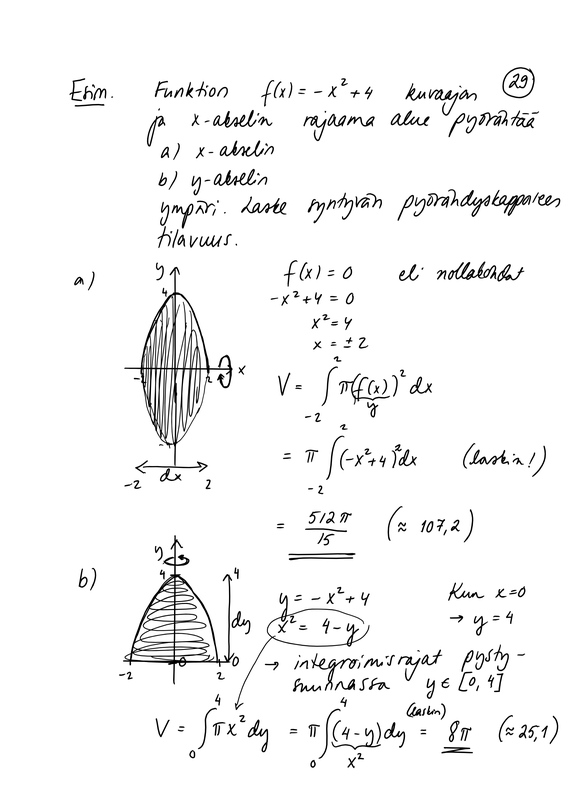 29
Esim. Funktion f(x) = -x² + 4 kuvaajan
ja x-akselin rajaama alue pyörähtää
a) x-akselin
b) y-akselin
ympäri. Laske syntyvän pyörähdyskappaleen
tilavuus.
a)
y
4
-2
2
x
-4
-2 dx 2
f(x) = 0 eli nollakohdat
-x² + 4 = 0
x² = 4
x = ±2
V = ∫_{-2}^{2} π(f(x))² dx
y
= π ∫_{-2}^{2} (-x²+4)² dx (laskin!)
= 512π/15 (≈ 107,2)
b)
y
4
4
dy
0
0
-2
2
y = -x² + 4
x² = 4 - y
Kun x=0
→ y = 4
→ integroimisrajat pysty-
suunnassa y ∈ [0, 4]
V = ∫_{0}^{4} π x² dy = π ∫_{0}^{4} (4-y) dy = (laskin) 8π (≈ 25,1)
x²